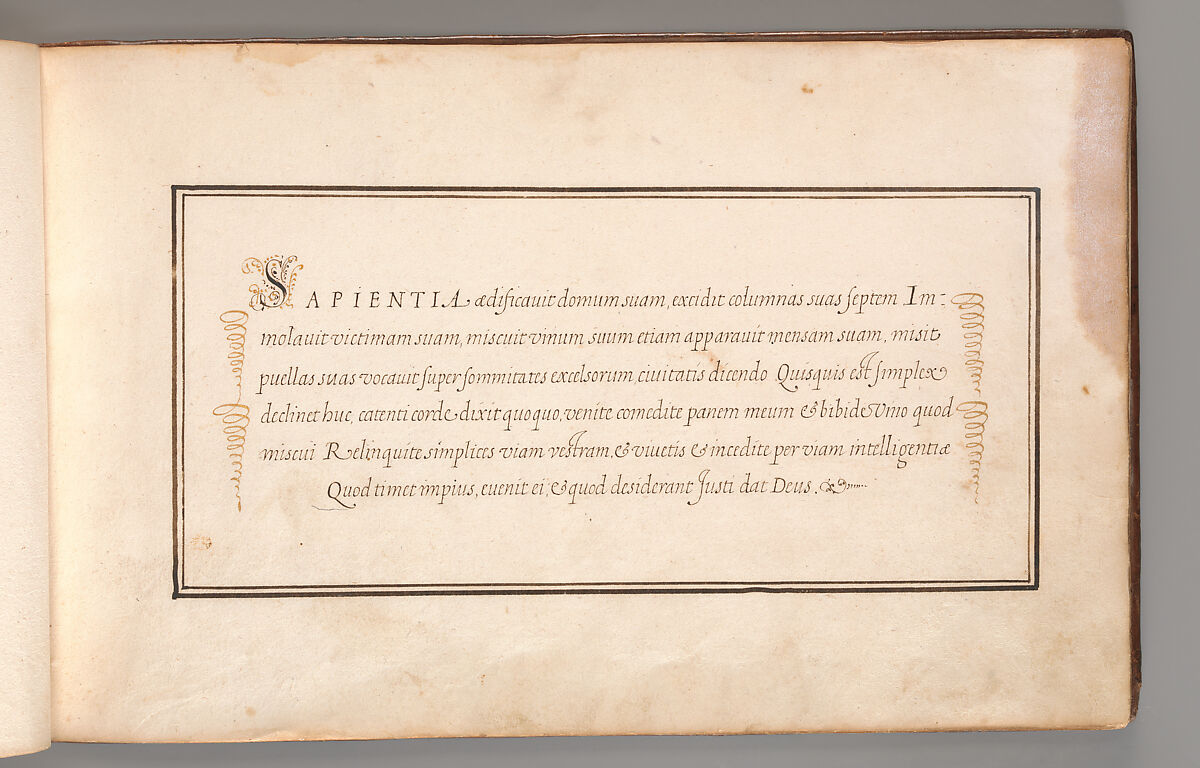 SAPIENTIA ædificauit domum suam, excidit columnas suas septem Im-
molauit victimam suam, miscuit vinum suum etiam apparauit mensam suam, misit
puellas suas vocauit super sommitates excelsorum, ciuitatis dicendo Quisquis est simplex
declinet huc, catenti corde dixit quoquo, venite comedite panem meum & bibide vino quod
miscui Relinquite simplices viam vestram, & viuetis & incedite per viam intelligentiæ
Quod timet impius, euenit ei, & quod desiderant Justi dat Deus.